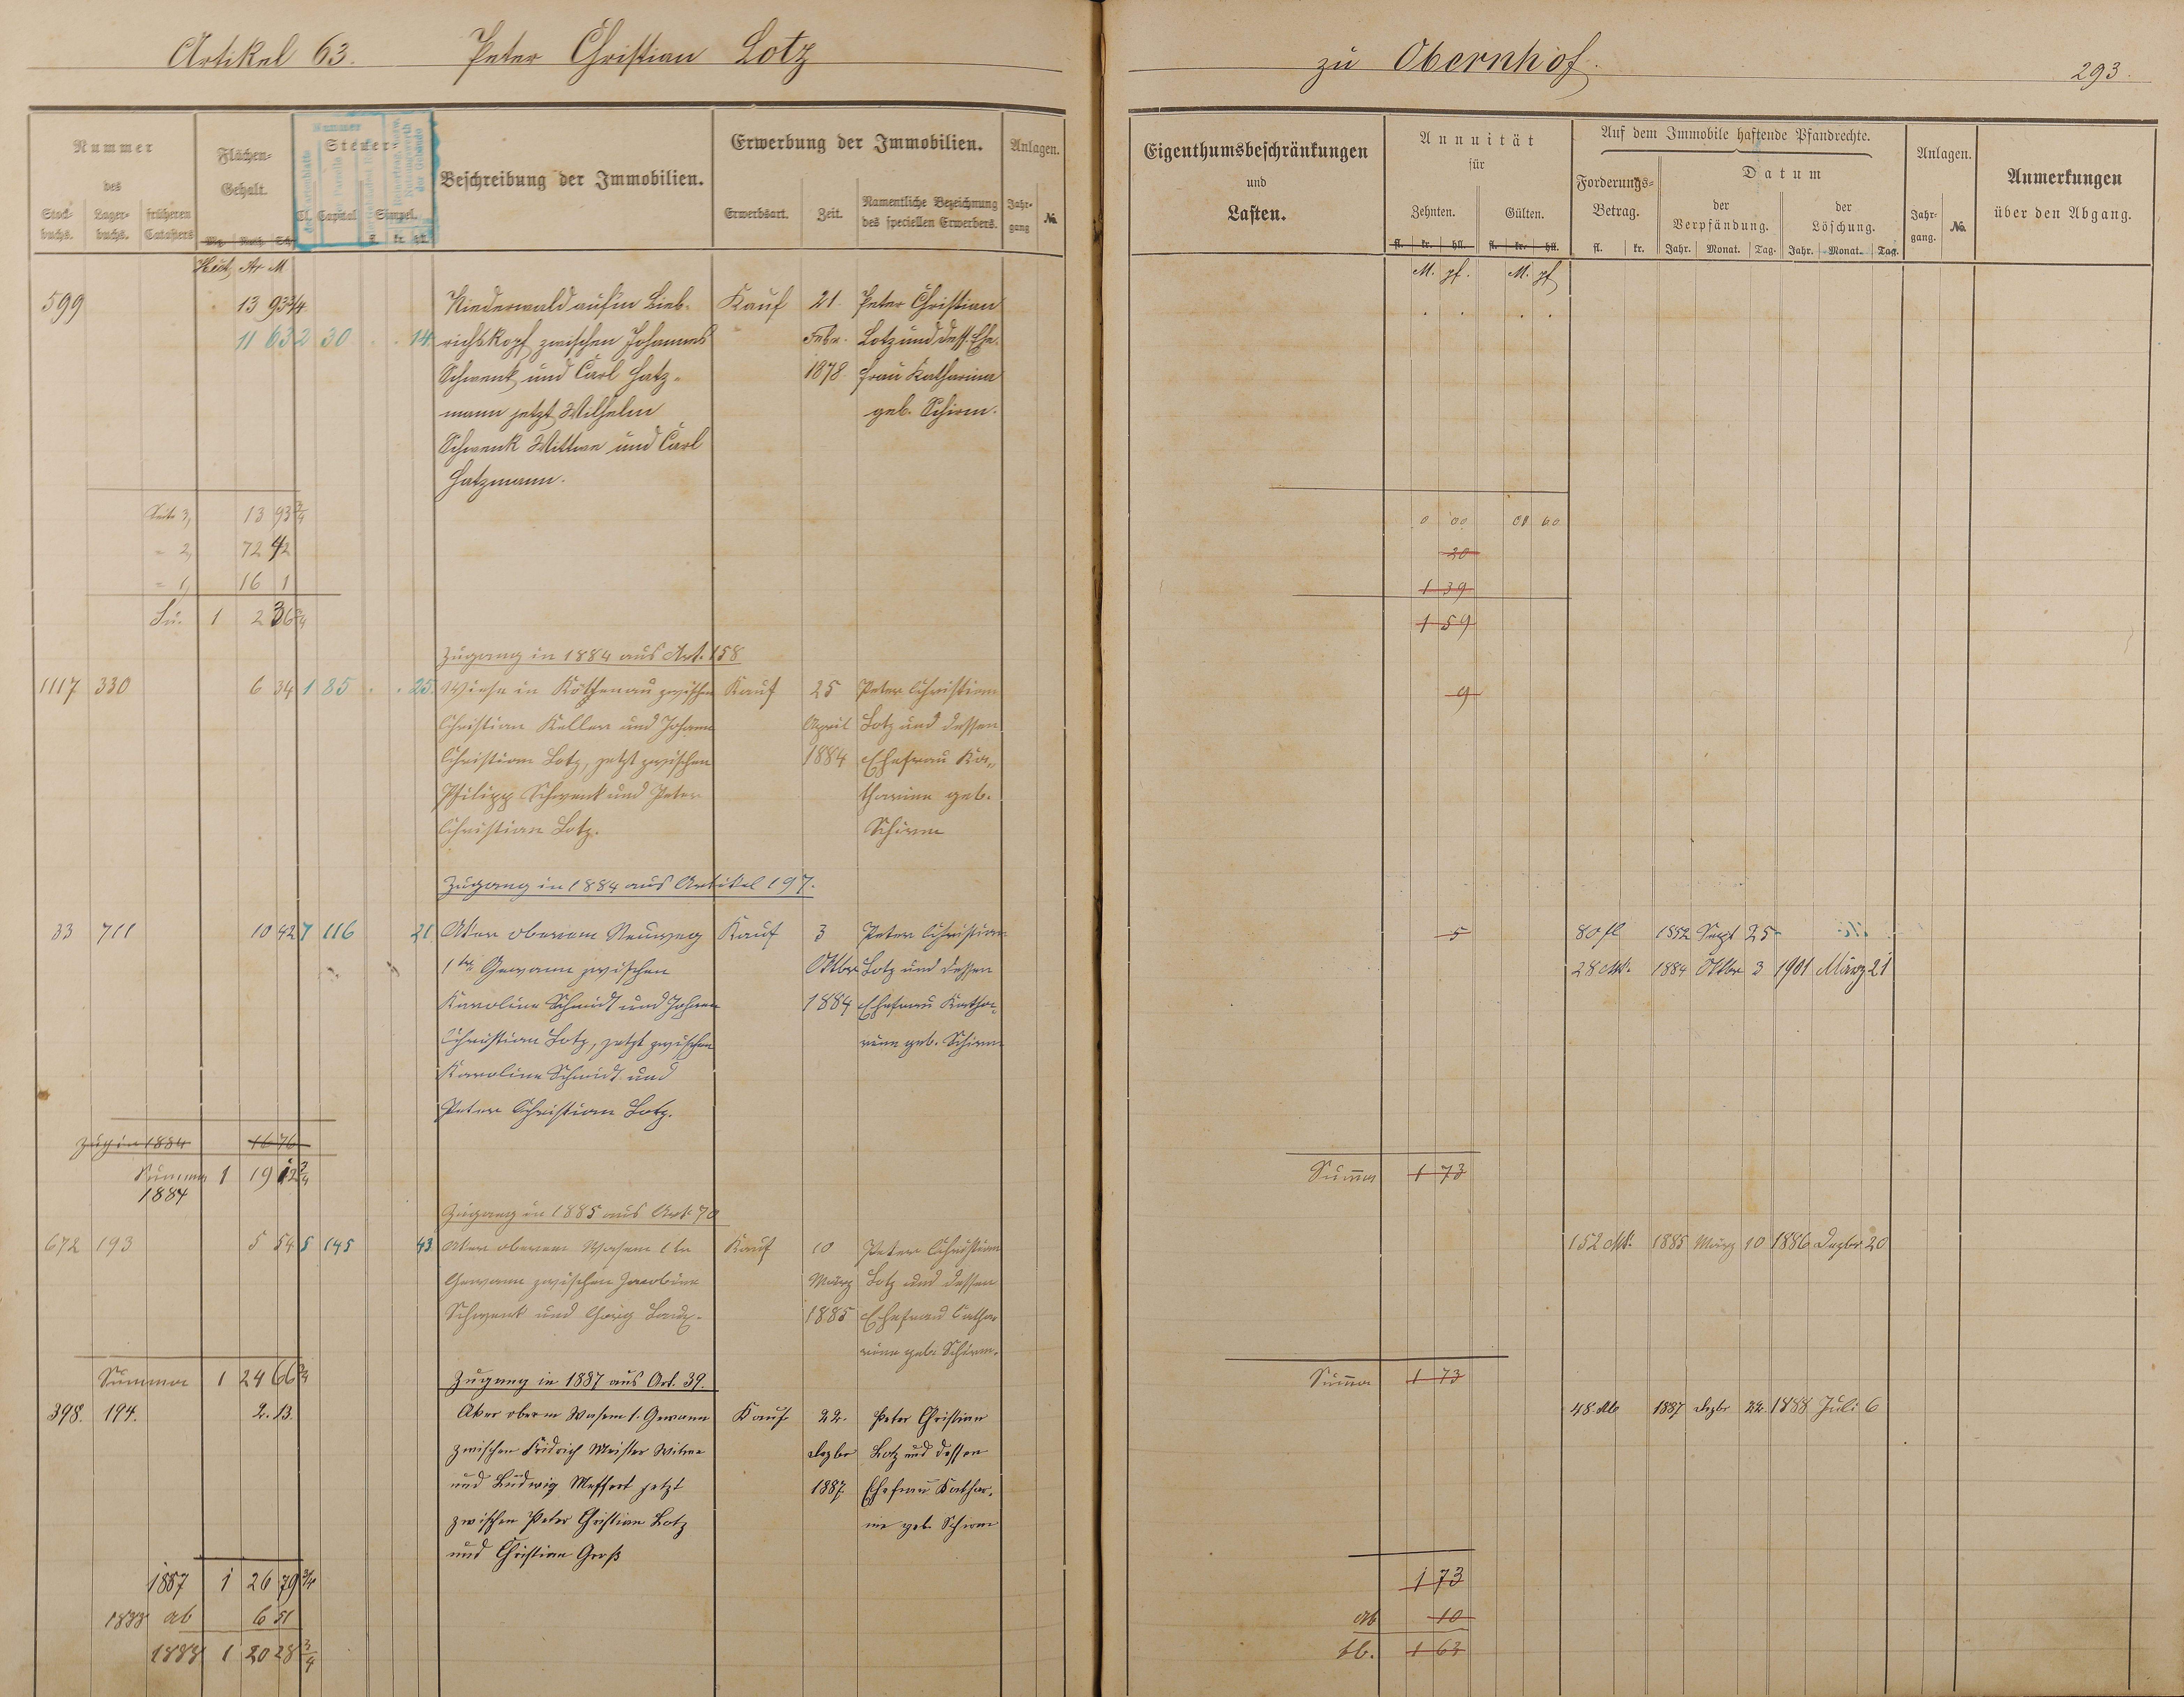 Artikel 63. Peter Christian Lotz
zu Obernhof.
293.
Nummer
des
Stock-
buchs.
Lager-
buchs.
früheren
Catasters
Flächen-
Gehalt.
Mg. Ruth. Sch.
Steuer-
Cl. Capital Simpel.
fl. kr. hll.
Beschreibung der Immobilien.
Erwerbung der Immobilien.
Erwerbsart. Zeit.
Namentliche Bezeichnung
des speciellen Erwerbers.
Anlagen.
Jahr-
gang
No.
Eigenthumsbeschränkungen
und
Lasten.
Annuität
für
Zehnten. Gülten.
fl. kr. hll. fl. kr. hll.
Auf dem Immobile haftende Pfandrechte.
Forderungs-
Betrag.
fl. kr.
Datum
der
Verpfändung.
der
Löschung.
Jahr. Monat. Tag. Jahr. Monat. Tag.
Anlagen.
Jahr-
gang.
No.
Anmerkungen
über den Abgang.
Hect. Ar M
M. pf. M. pf
599 13 93 3/4 Niederwald auf'm Lieb- Kauf 21. Peter Christian
11 63 2 30 14 richskopf zwischen Johannes Febr. Lotz und dess. Ehe-
Schwenk und Carl Hatz- 1878 frau Katharina
mann jetzt Wilhelm geb. Schirm.
Schwenk Wittwe und Carl
Hatzmann.
Seite 3, 13 93 3/4
0 00 00 60
" 2, 72 42
20
" 1, 16 1
1 39
Su. 1 2 36 3/4
1 59
Zugang in 1884 aus Art. 158
1117 330 6 34 1 85 25 Wiese in Köthenau zwischen Kauf 25 Peter Christian
9
Christian Keller und Johann April Lotz und dessen
Christian Lotz, jetzt zwischen 1884 Ehefrau Ka-
Philipp Schwenk und Peter tharina geb.
Christian Lotz. Schirm
Zugang in 1884 aus Artikel 197.
33 711 10 42 7 116 21 Aker oberem Neuweg Kauf 3 Peter Christian
5 80 fl 1852 Sept 25
1te Gewann zwischen Oktbr Lotz und dessen
28 Mk. 1884 Oktbr 3 1901 März 21
Karoline Schmidt und Johann 1884 Ehefrau Katha-
Christian Lotz, jetzt zwischen rina geb. Schirm
Karoline Schmidt und
Peter Christian Lotz.
Zug in 1884 16 76
Summa 1 19 12 3/4
1884
Summa 1 73
Zugang in 1885 aus Art. 70
672 193 5 54 5 145 43 Aker oberem Wasem 1te Kauf 10 Peter Christian
152 Mk. 1885 März 10 1886 Dezbr 20
Gewann zwischen Jacobine März Lotz und dessen
Schwenk und Georg 1885 Ehefrau Catha-
rina geb. Schirm.
Summa 1 24 66 3/4
Summa 1 73
Zugang in 1887 aus Art. 39.
398. 194. 2. 13. Aker oberm Wasem 1. Gewann Kauf 22. Peter Christian
48 Mk 1887 Dezbr 22. 1888 Juli 6
zwischen Fridrich Meister Witwe Dezbr Lotz und dessen
und Ludwig Meffert jetzt 1887. Ehefrau Kathar-
zwischen Peter Christian Lotz ine geb. Schirm
und Christian Groß
1887 1 26 79 3/4
1 73
1888 ab 6 51
ab 10
1888 1 20 28 3/4
bl. 1 63